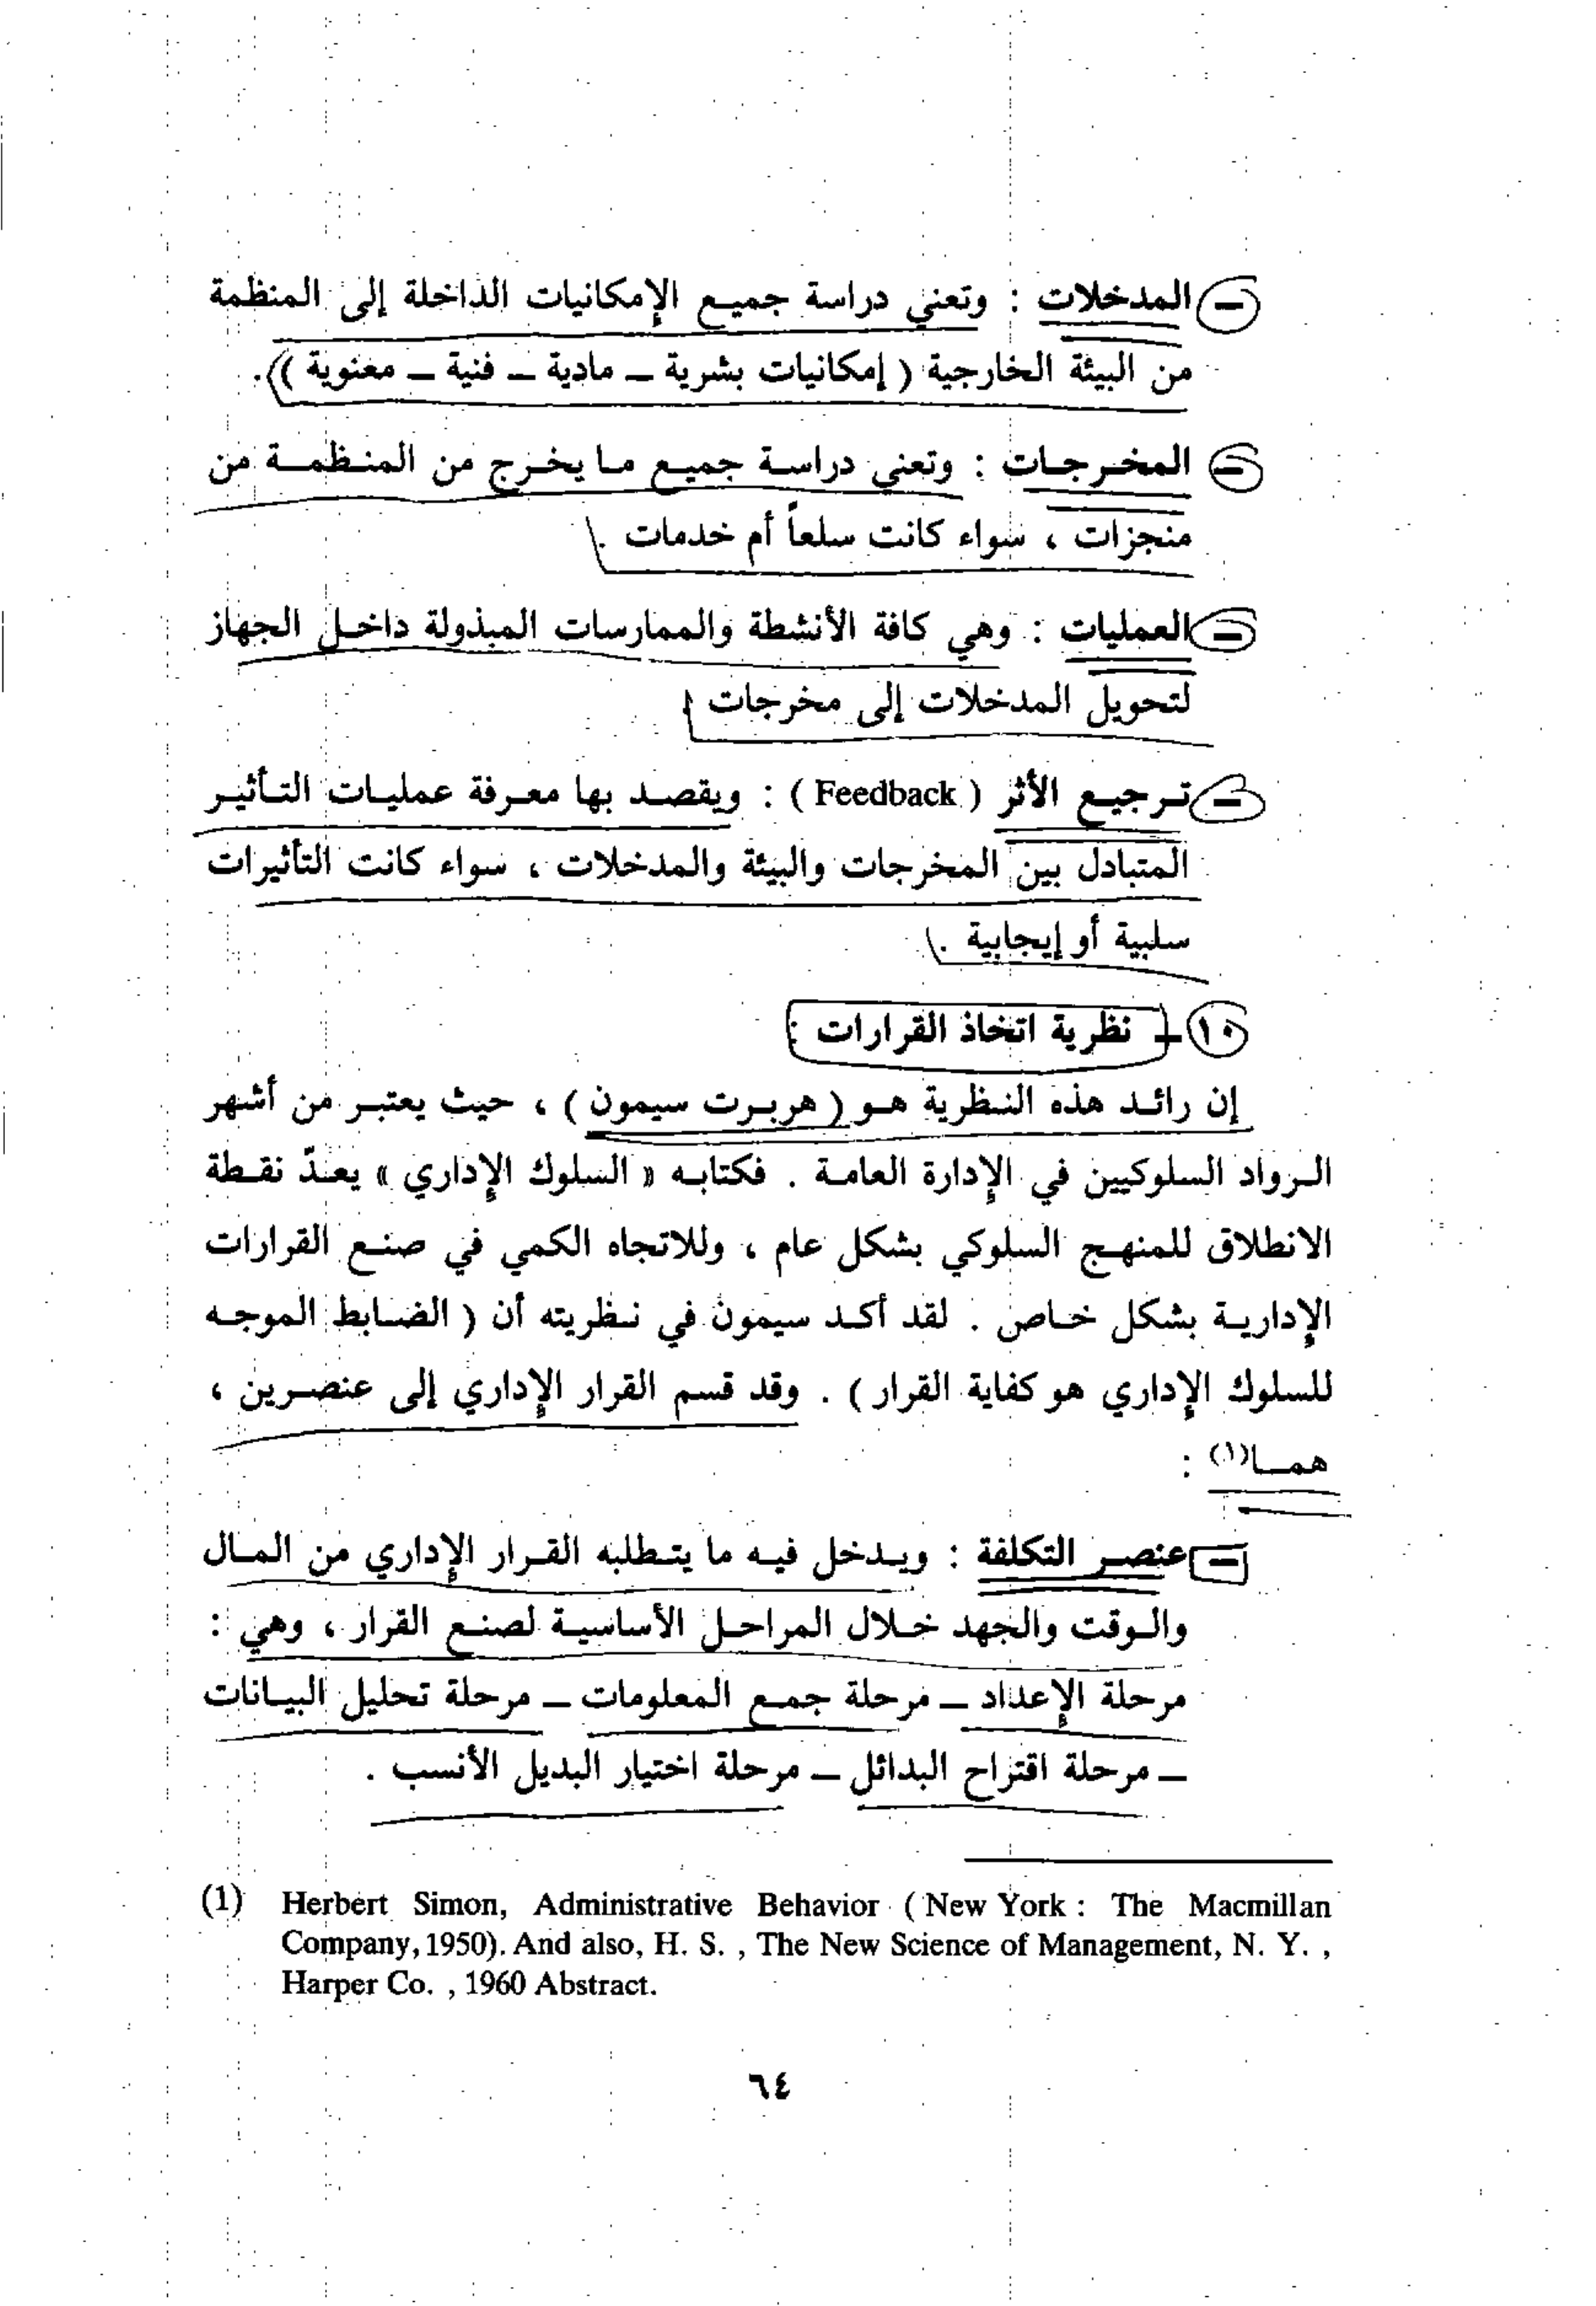 - المدخلات : وتعني دراسة جميع الإمكانيات الداخلة إلى المنظمة
من البيئة الخارجية ( إمكانيات بشرية - مادية - فنية - معنوية ) .
- المخرجات : وتعني دراسة جميع ما يخرج من المنظمة من
منجزات ، سواء كانت سلعاً أم خدمات .
- العمليات : وهي كافة الأنشطة والممارسات المبذولة داخل الجهاز
لتحويل المدخلات إلى مخرجات .
- ترجيع الأثر ( Feedback ) : ويقصد بها معرفة عمليات التأثير
المتبادل بين المخرجات والبيئة والمدخلات ، سواء كانت التأثيرات
سلبية أو إيجابية .
١٠ - نظرية اتخاذ القرارات :
إن رائد هذه النظرية هو ( هربرت سيمون ) ، حيث يعتبر من أشهر
الرواد السلوكيين في الإدارة العامة . فكتابه « السلوك الإداري » يعدّ نقطة
الانطلاق للمنهج السلوكي بشكل عام ، وللاتجاه الكمي في صنع القرارات
الإدارية بشكل خاص . لقد أكد سيمون في نظريته أن ( الضابط الموجه
للسلوك الإداري هو كفاية القرار ) . وقد قسم القرار الإداري إلى عنصرين ،
هما(١) :
- عنصر التكلفة : ويدخل فيه ما يتطلبه القرار الإداري من المال
والوقت والجهد خلال المراحل الأساسية لصنع القرار ، وهي :
مرحلة الإعداد - مرحلة جمع المعلومات - مرحلة تحليل البيانات
- مرحلة اقتراح البدائل - مرحلة اختيار البديل الأنسب .
(1) Herbert Simon, Administrative Behavior ( New York : The Macmillan
Company, 1950). And also, H. S. , The New Science of Management, N. Y. ,
Harper Co. , 1960 Abstract.
٦٤